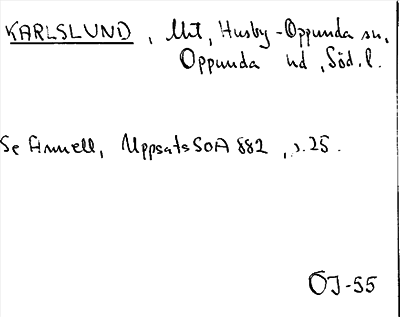 KARLSLUND, Uht, Husby-Oppunda sn,
Oppunda hd, Söd.l.
Se Annell, Uppsats SOA 882, s.25.
ÖJ-55